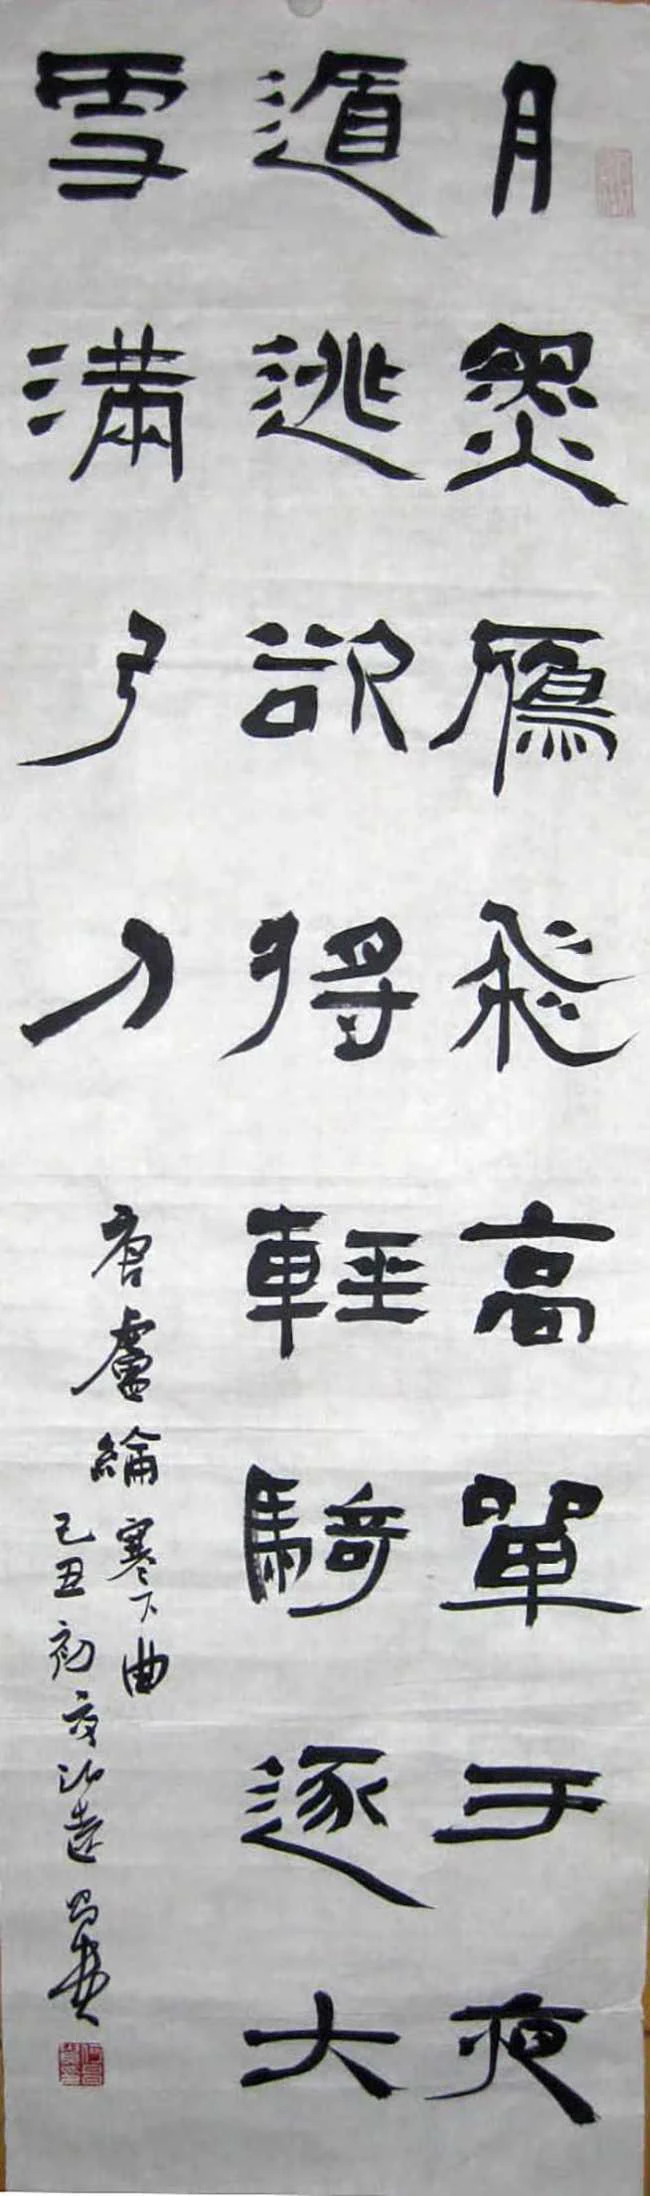 月黑鴈飛高單于夜
遁逃欲將輕騎逐大
雪滿弓刀
唐盧綸
塞下曲
己丑初夏